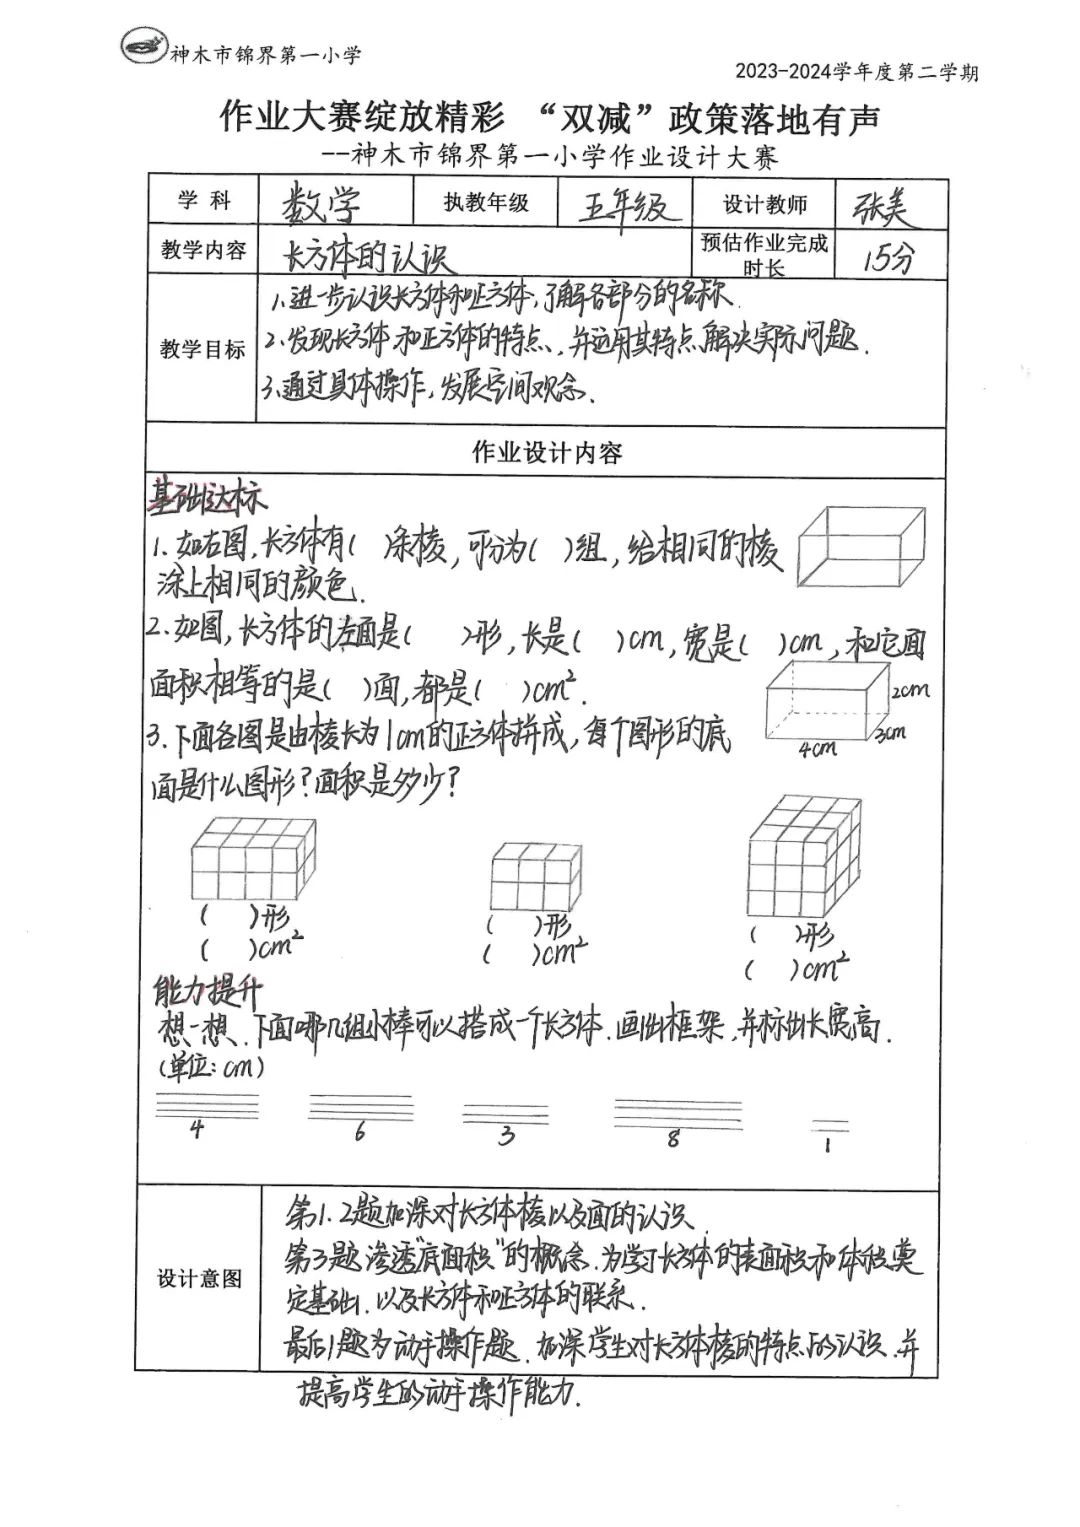 神木市锦界第一小学
2023-2024学年度第二学期
作业大赛绽放精彩 “双减”政策落地有声
--神木市锦界第一小学作业设计大赛
学 科 数学 执教年级 五年级 设计教师 张美
教学内容 长方体的认识 预估作业完成时长 15分
教学目标
1、进一步认识长方体和正方体，了解各部分的名称.
2、发现长方体和正方体的特点，并运用其特点解决实际问题.
3、通过具体操作，发展空间观念.
作业设计内容
基础达标
1. 如右图，长方体有( )条棱，可分为( )组，给相同的棱
涂上相同的颜色.
2、如图，长方体的左面是( )形，长是( )cm，宽是( )cm，和它面
面积相等的是( )面，都是( )cm².
2cm
3cm
4cm
3、下面各图是由棱长为1cm的正方体拼成，每个图形的底
面是什么图形？面积是多少？
( )形 ( )形 ( )形
( )cm² ( )cm² ( )cm²
能力提升
想一想、下面哪几组小棒可以搭成一个长方体.画出框架，并标出长宽高.
(单位：cm)
4 6 3 8 1
设计意图
第1、2题加深对长方体棱以及面的认识.
第3题渗透“底面积”的概念.为学习长方体的表面积和体积奠
定基础.以及长方体和正方体的联系.
最后1题为动手操作题.加深学生对长方体棱的特点的认识.并
提高学生的动手操作能力.